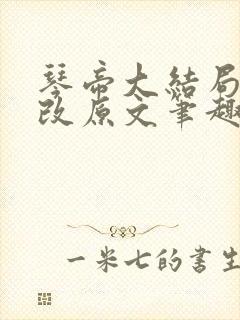 琴帝大结局
改原文笔趣
一米七的书生